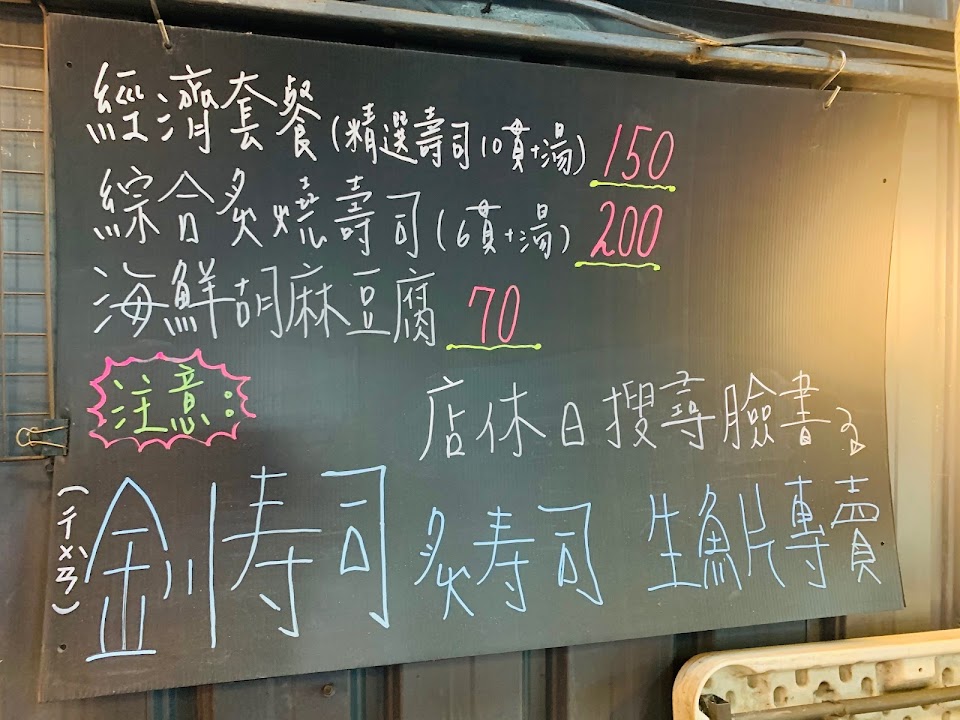 經濟套餐(精選壽司10貫+湯) 150
綜合炙燒壽司(6貫+湯) 200
海鮮胡麻豆腐 70
注意:
店休日搜尋臉書
(ㄔㄨㄢˋ)
釧寿司 炙寿司 生魚片專賣